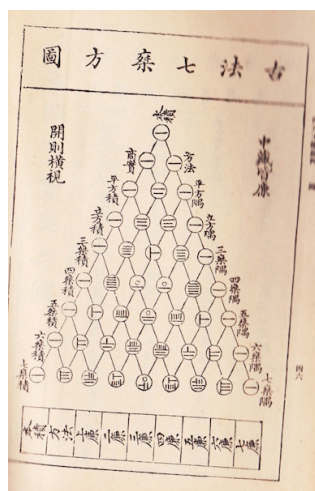 古法七乘方圖
中藏皆廉
開則橫視
本積
商實
方法
平方積
平方隅
立方積
立方隅
三乘積
三乘隅
四乘積
四乘隅
五乘積
五乘隅
六乘積
六乘隅
七乘積
七乘隅
本積
方法
上廉
二廉
三廉
四廉
五廉
六廉
七廉
四六